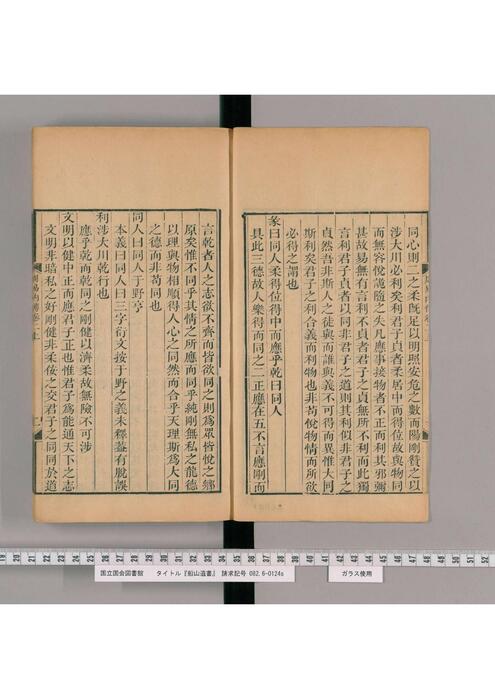 同心則二之柔旣足以明照安危之數而陽剛贊之以
涉大川必利矣利君子貞者柔居中而得位故與物同
而無容悅詭隨之失凡應事接物者不正而利其邪彌
甚故易無有言利不貞者君子之貞無所不利而此獨
言利君子貞者以同非君子之道則其利似非君子之
貞然吾非斯人之徒與而誰與義不可得而異惟大同
斯利矣君子之利合義而利物也非苟悅物情而所欲
必得之謂也
彖曰同人柔得位得中而應乎乾曰同人
具此三德故人樂得而同之二正應在五不言應剛而
言乾者人之志欲不齊而皆欲同之則爲眾皆悅之鄉
原矣惟不同乎其情之所應而同乎純剛無私之龍德
以理與物相順得人心之同然而合乎天理斯爲大同
之德而非苟同也
同人曰同人于野亨
本義曰同人曰三字衍文按于野之義未釋蓋有脫誤
利涉大川乾行也
應乎乾而乾同之剛健以濟柔故無險不可涉
文明以健中正而應君子正也惟君子爲能通天下之志
文明非暗私之好剛健非柔佞之交君子之同同於道
國立国会図書館 タイトル『船山遺書』 請求記号 082.6-0124s
ガラス使用